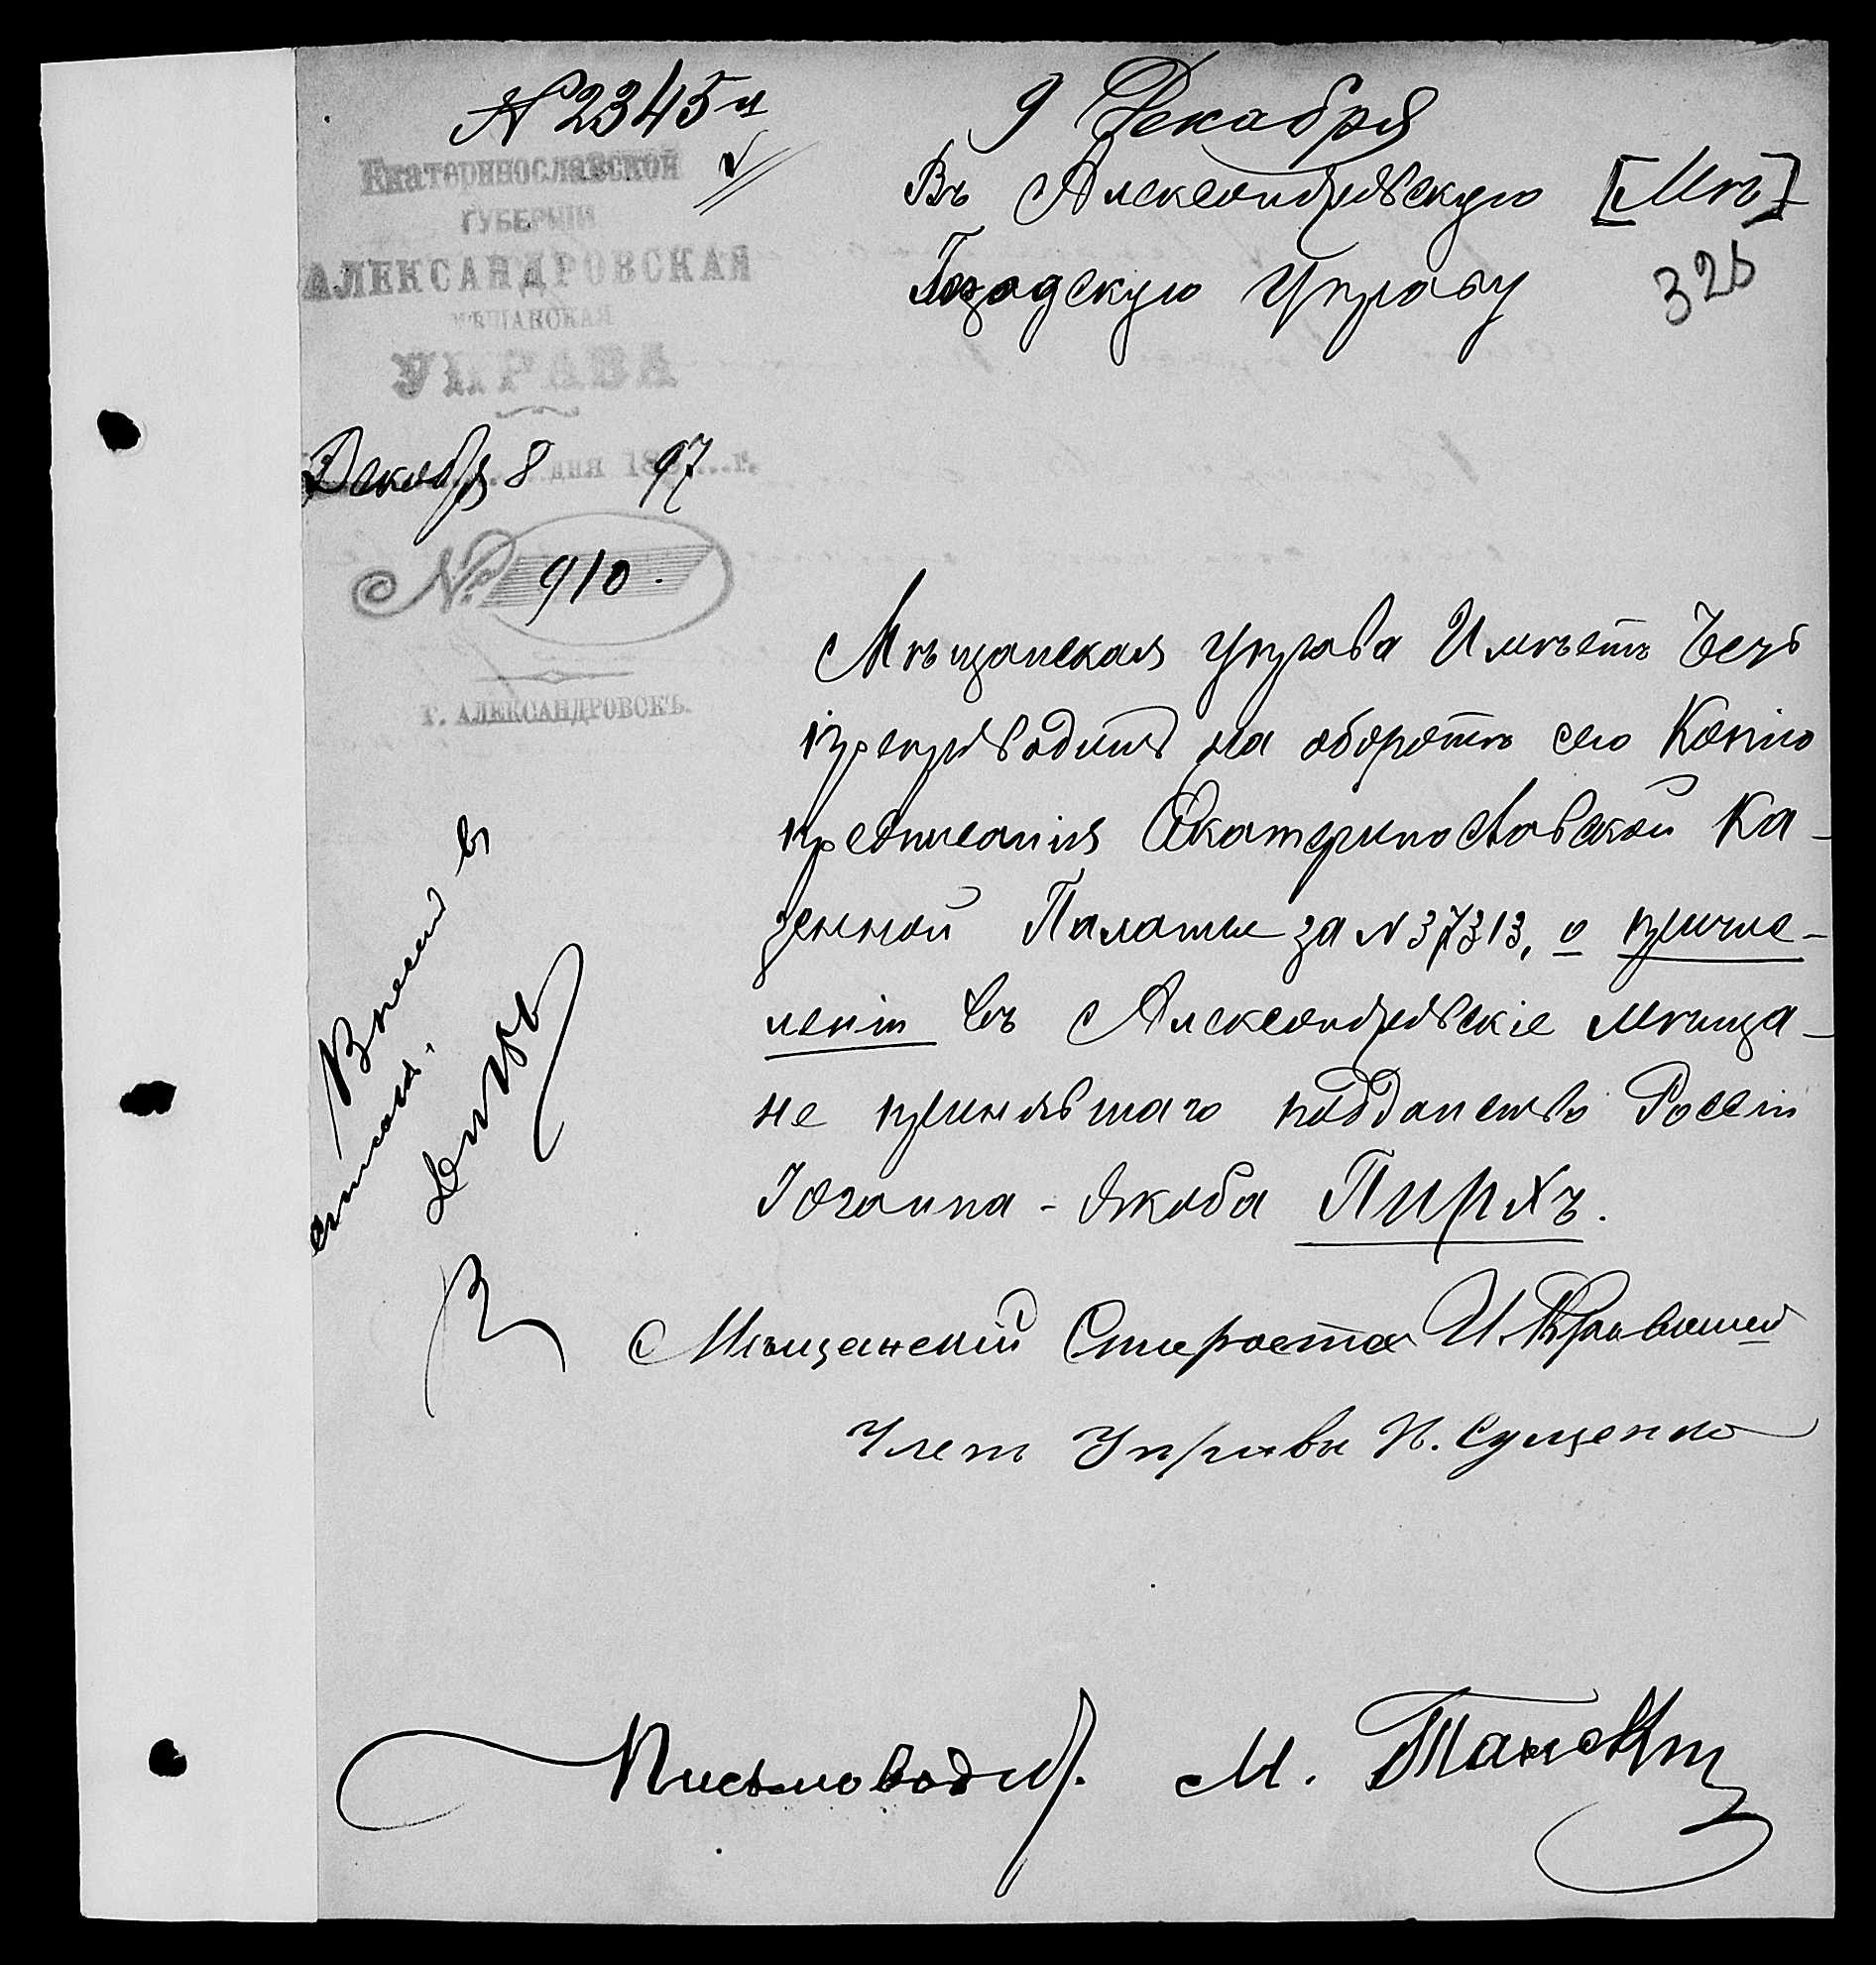 № 2345 м
9 Декабря
Екатеринославской
ГУБЕРНІИ
АЛЕКСАНДРОВСКАЯ
МѢЩАНСКАЯ
УПРАВА
Декабря 8 дня 1897 г.
№ 910.
г. АЛЕКСАНДРОВСКЪ.
Въ Александровскую
Городскую Управу
326
Мѣщанская управа Имѣетъ Честь
препроводить на оборотѣ сего Копію
предписанія Екатеринославской Ка-
зенной Палаты за № 37313, о причис-
леніи въ Александровскіе мѣща-
не принявшаго подданство Россіи
Іоганна-Якова Пирхъ.
Мѣщанскій Староста И.
Членъ Управы И. Сущенко
Письмовод. М.
Внести въ